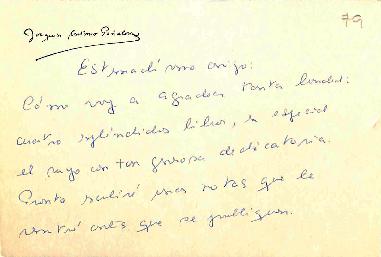 79
Joaquín Antonio Peñalosa
Estimadísimo amigo:
Cómo voy a agradecer tanta bondad:
cuatro espléndidos libros, en especial
el suyo con tan generosa dedicatoria.
Pronto escribiré unas notas que le
mostraré antes que se publiquen.